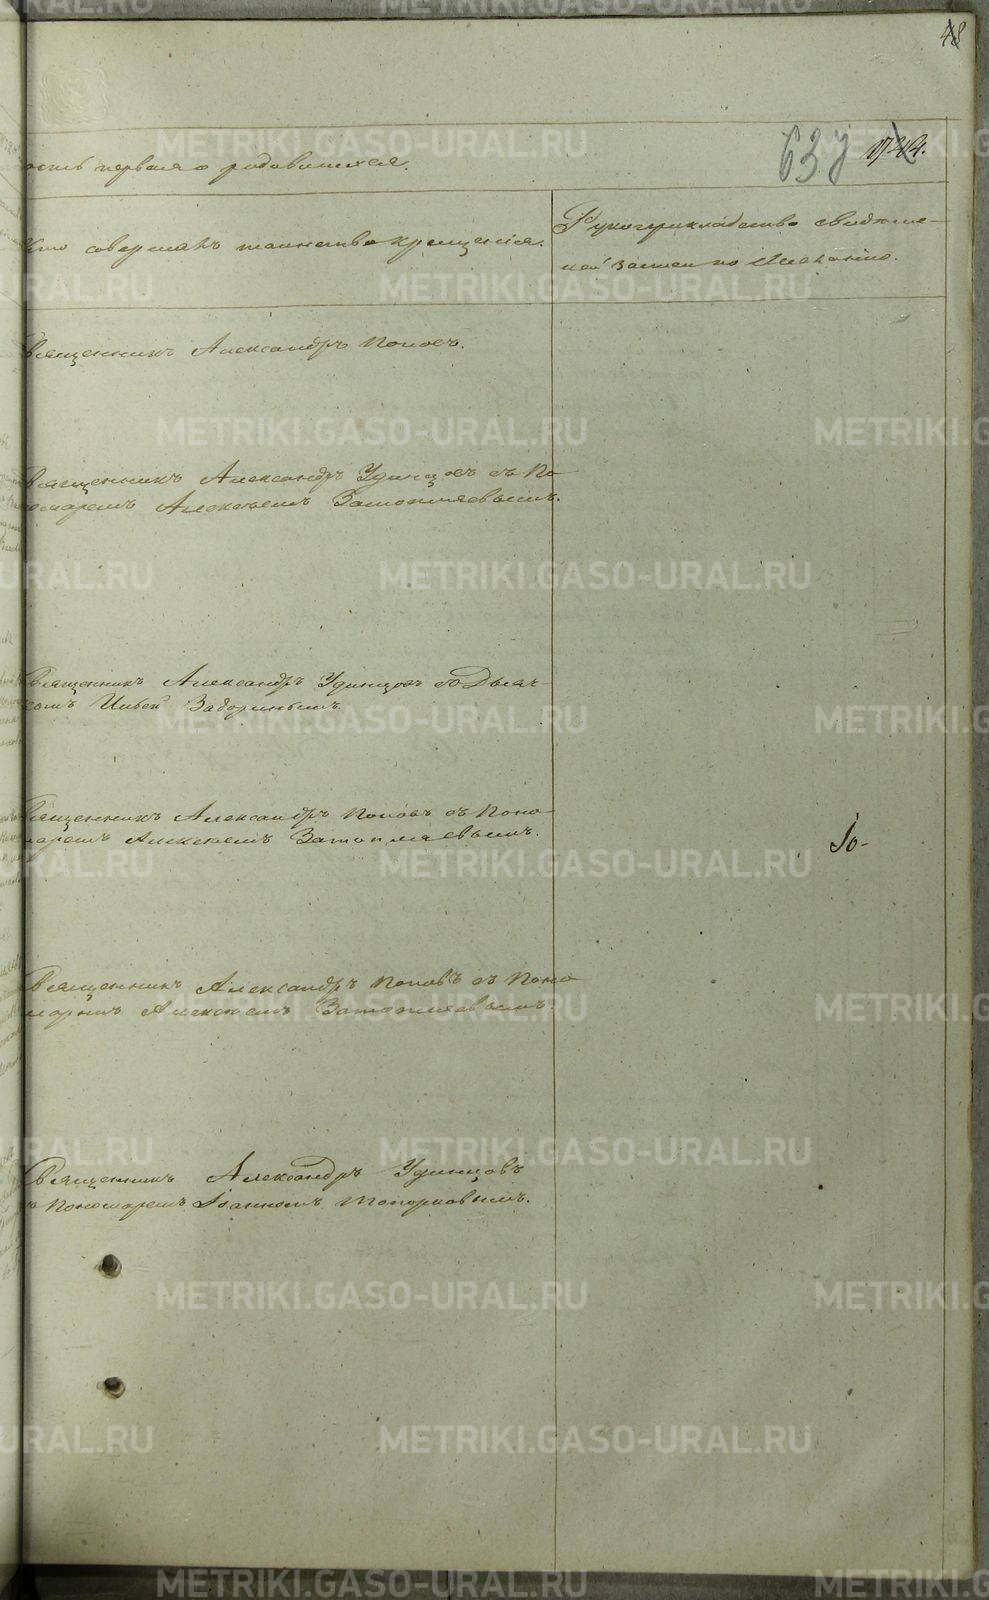 48
637
асть первая о родившихся.
Кто совершалъ таинство крещенія.
Рукоприкладство свидѣте-
лей записи по желанію.
Священникъ Александръ Поповъ.
Священникъ Александръ Удинцовъ съ По-
номаремъ Алексѣемъ Затопляевымъ.
Священникъ Александръ Удинцовъ со Дьяч-
комъ Ильей Задоринымъ.
Священникъ Александръ Поповъ съ Поно-
маремъ Алексѣемъ Затопляевымъ.
Священникъ Александръ Поповъ съ Поно
маремъ Алексѣемъ Затопляевымъ.
Священникъ Александръ Удинцовъ
съ Пономаремъ Іоанномъ Топорковымъ.
Іо-
METRIKI.GASO-URAL.RU